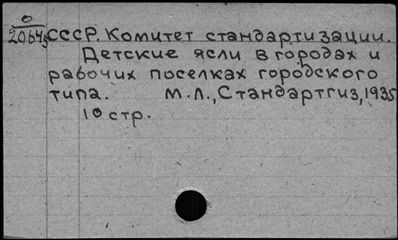 0
20645
СССР. Комитет стандартизации.
Детские ясли в городах и
рабочих поселках городского
типа. М.Л., Стандартгиз, 1935
10 стр.